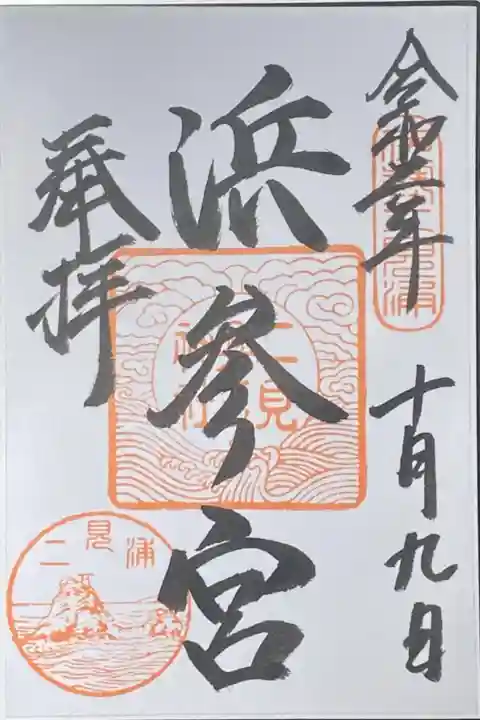 令和二年
十月九日
浜参宮
奉拝
二見
二見浦